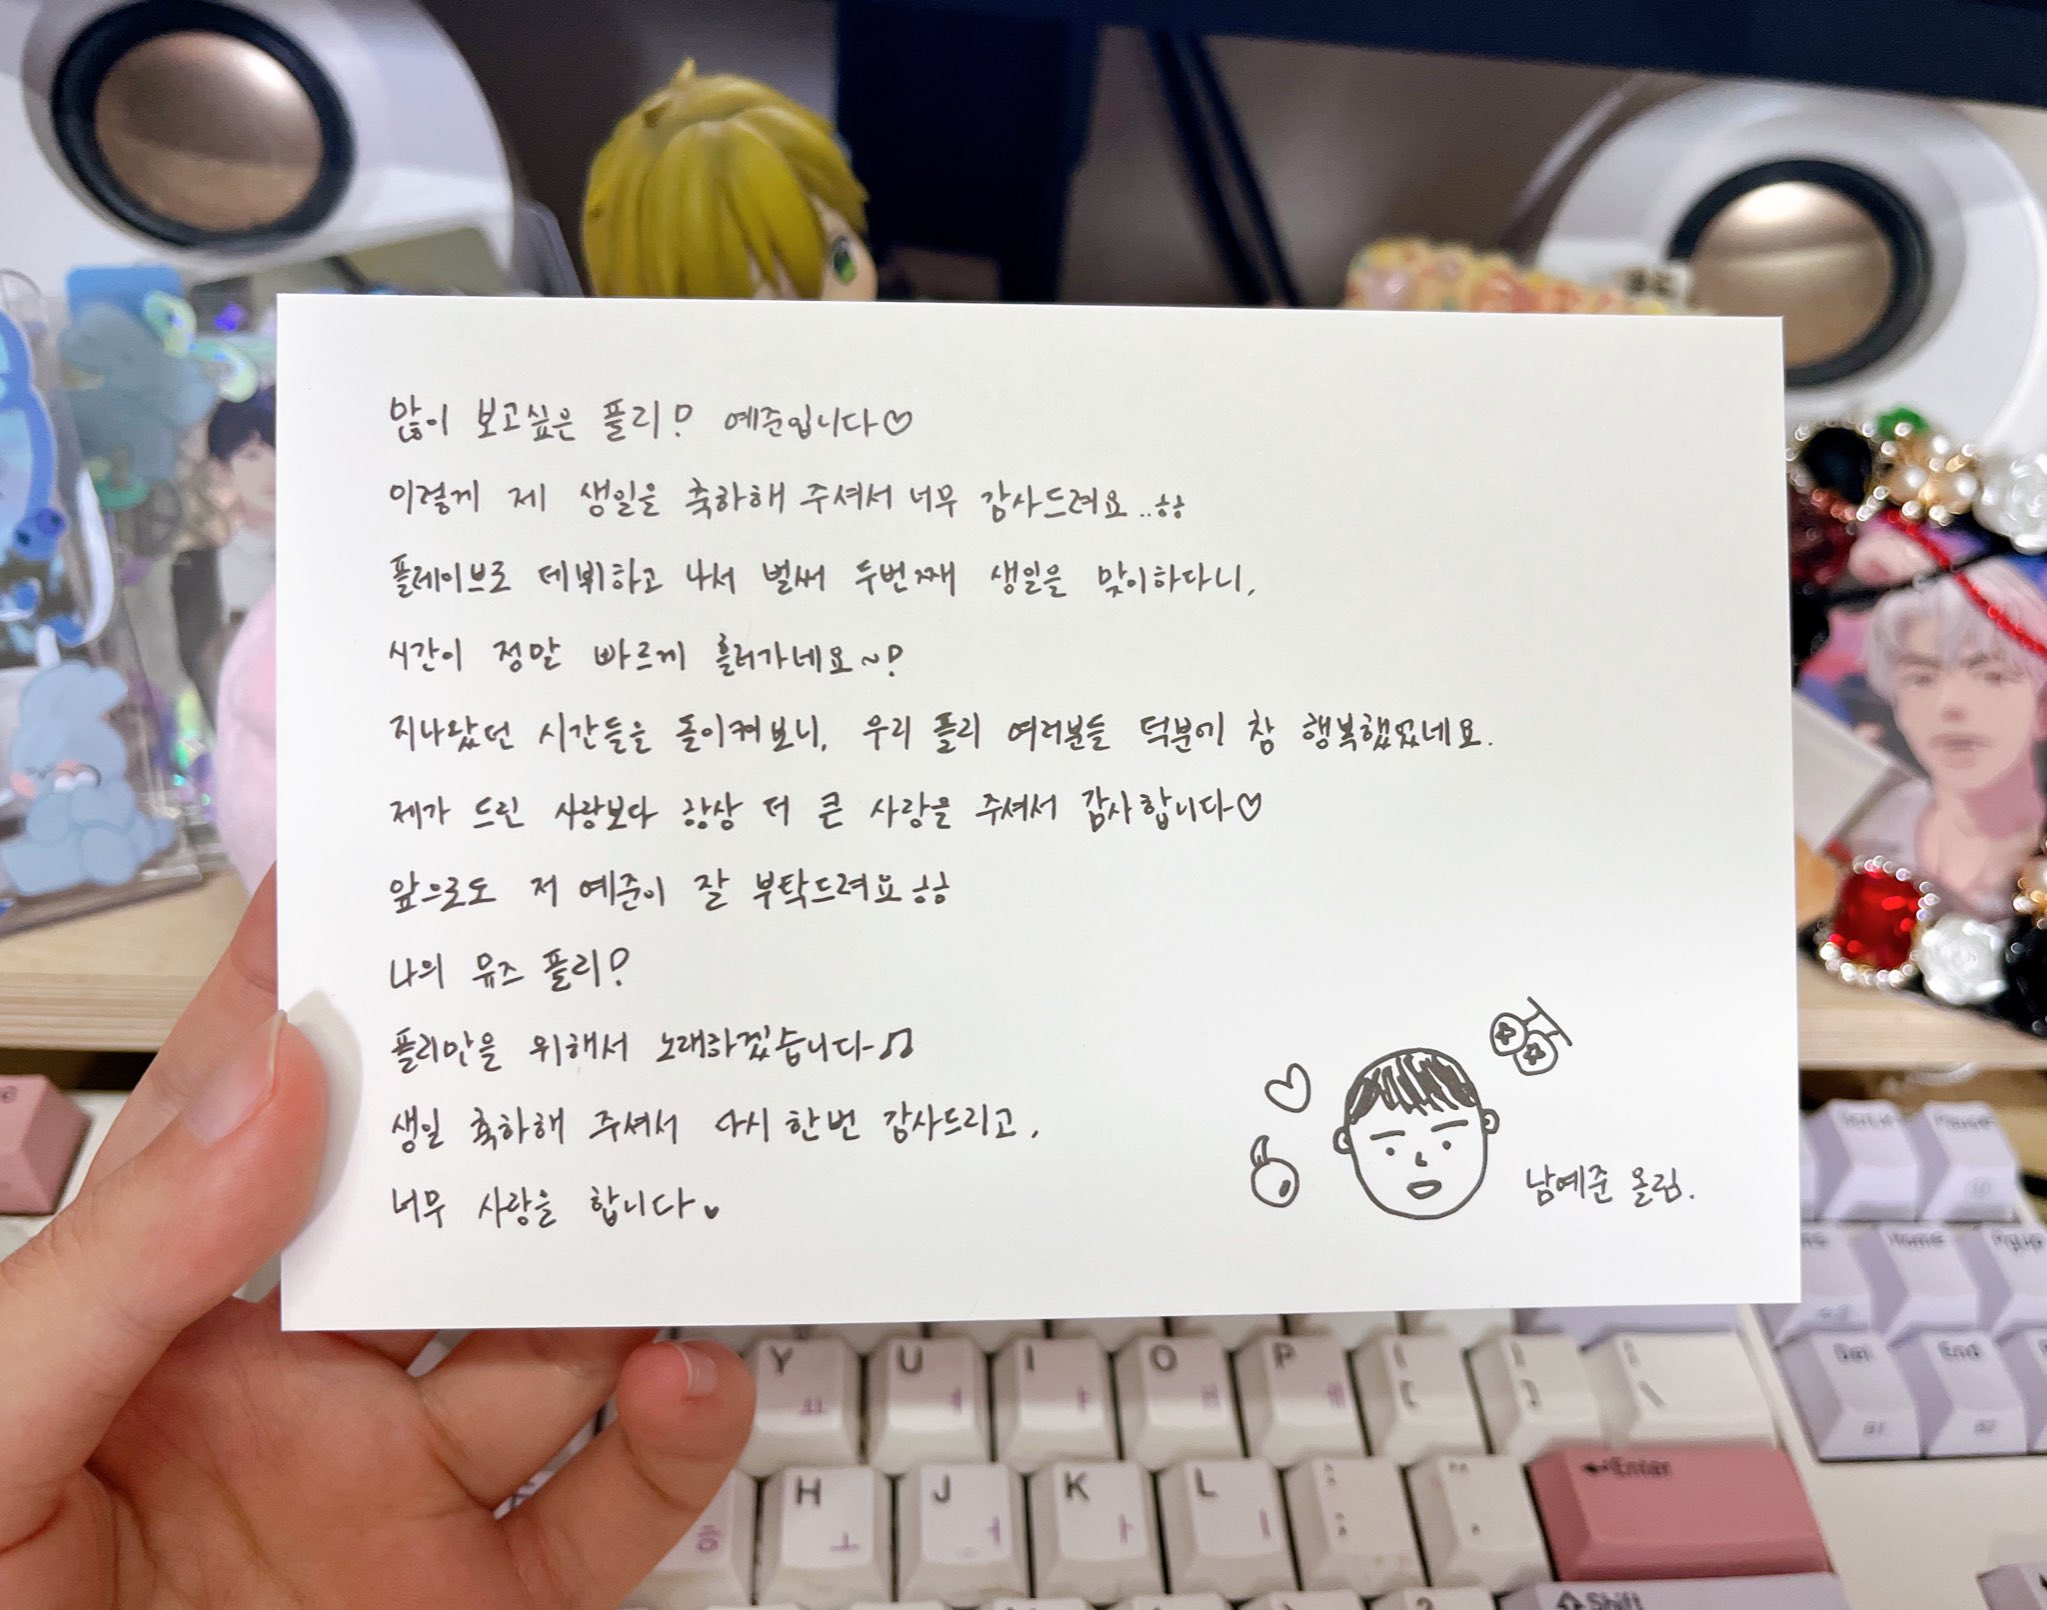 많이 보고싶은 플리! 예준입니다♡
이렇게 제 생일을 축하해 주셔서 너무 감사드려요..ㅎㅎ
플레이브로 데뷔하고 나서 벌써 두번째 생일을 맞이하다니,
시간이 정말 빠르게 흘러가네요~!
지나왔던 시간들을 돌이켜보니, 우리 플리 여러분들 덕분에 참 행복했었네요.
제가 드린 사랑보다 항상 더 큰 사랑을 주셔서 감사합니다♡
앞으로도 저 예준이 잘 부탁드려요ㅎㅎ
나의 뮤즈 플리!
플리만을 위해서 노래하겠습니다♫
생일 축하해 주셔서 다시 한번 감사드리고,
너무 사랑을 합니다♥
남예준 올림.
Pause
Home
PgUp
Del
End
Y ㅛ
U ㅕ
I ㅑ
O ㅐ
P ㅔ
[
]
\
Enter
ㅎ
H ㅗ
J ㅓ
K ㅏ
L ㅣ
Shift